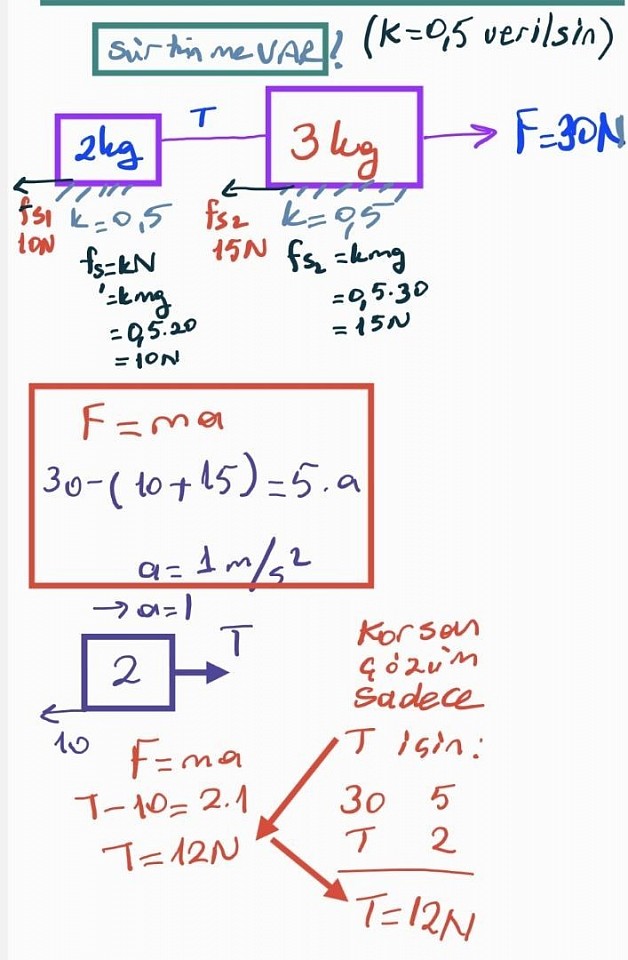 Sürtünme VAR! (k=0,5 verilsin)
2kg T 3kg F=30N
fs1 k=0,5 fs2 k=0,5
10N 15N
fs=kN
'=kmg
=0,5.20
=10N
fs2=kmg
=0,5.30
=15N
F=ma
30-(10+15)=5.a
a=1m/s²
→a=1
2 T
10
F=ma
T-10=2.1
T=12N
Korsan
Çözüm
Sadece
T için:
30 5
T 2
T=12N